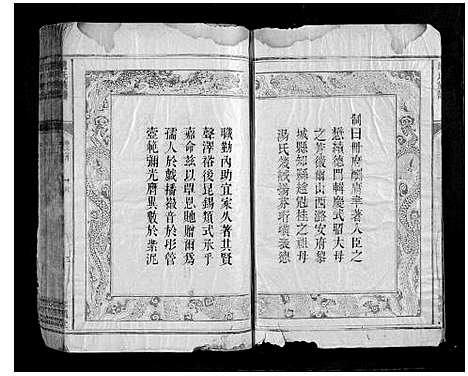 制曰冊府酬庸聿著人臣之
懋績德門輯慶式昭大母
之芳徽爾山西潞安府黎
城縣知縣趙魁桂之祖母
湯氏箴誡揚芬珩璜表德
職勤內助宜家久著其賢
聲澤裕後昆錫類式承乎
嘉命茲以覃恩貤贈爾為
孺人於戲播徽音於彤管
壼範彌光膺異數於紫泥